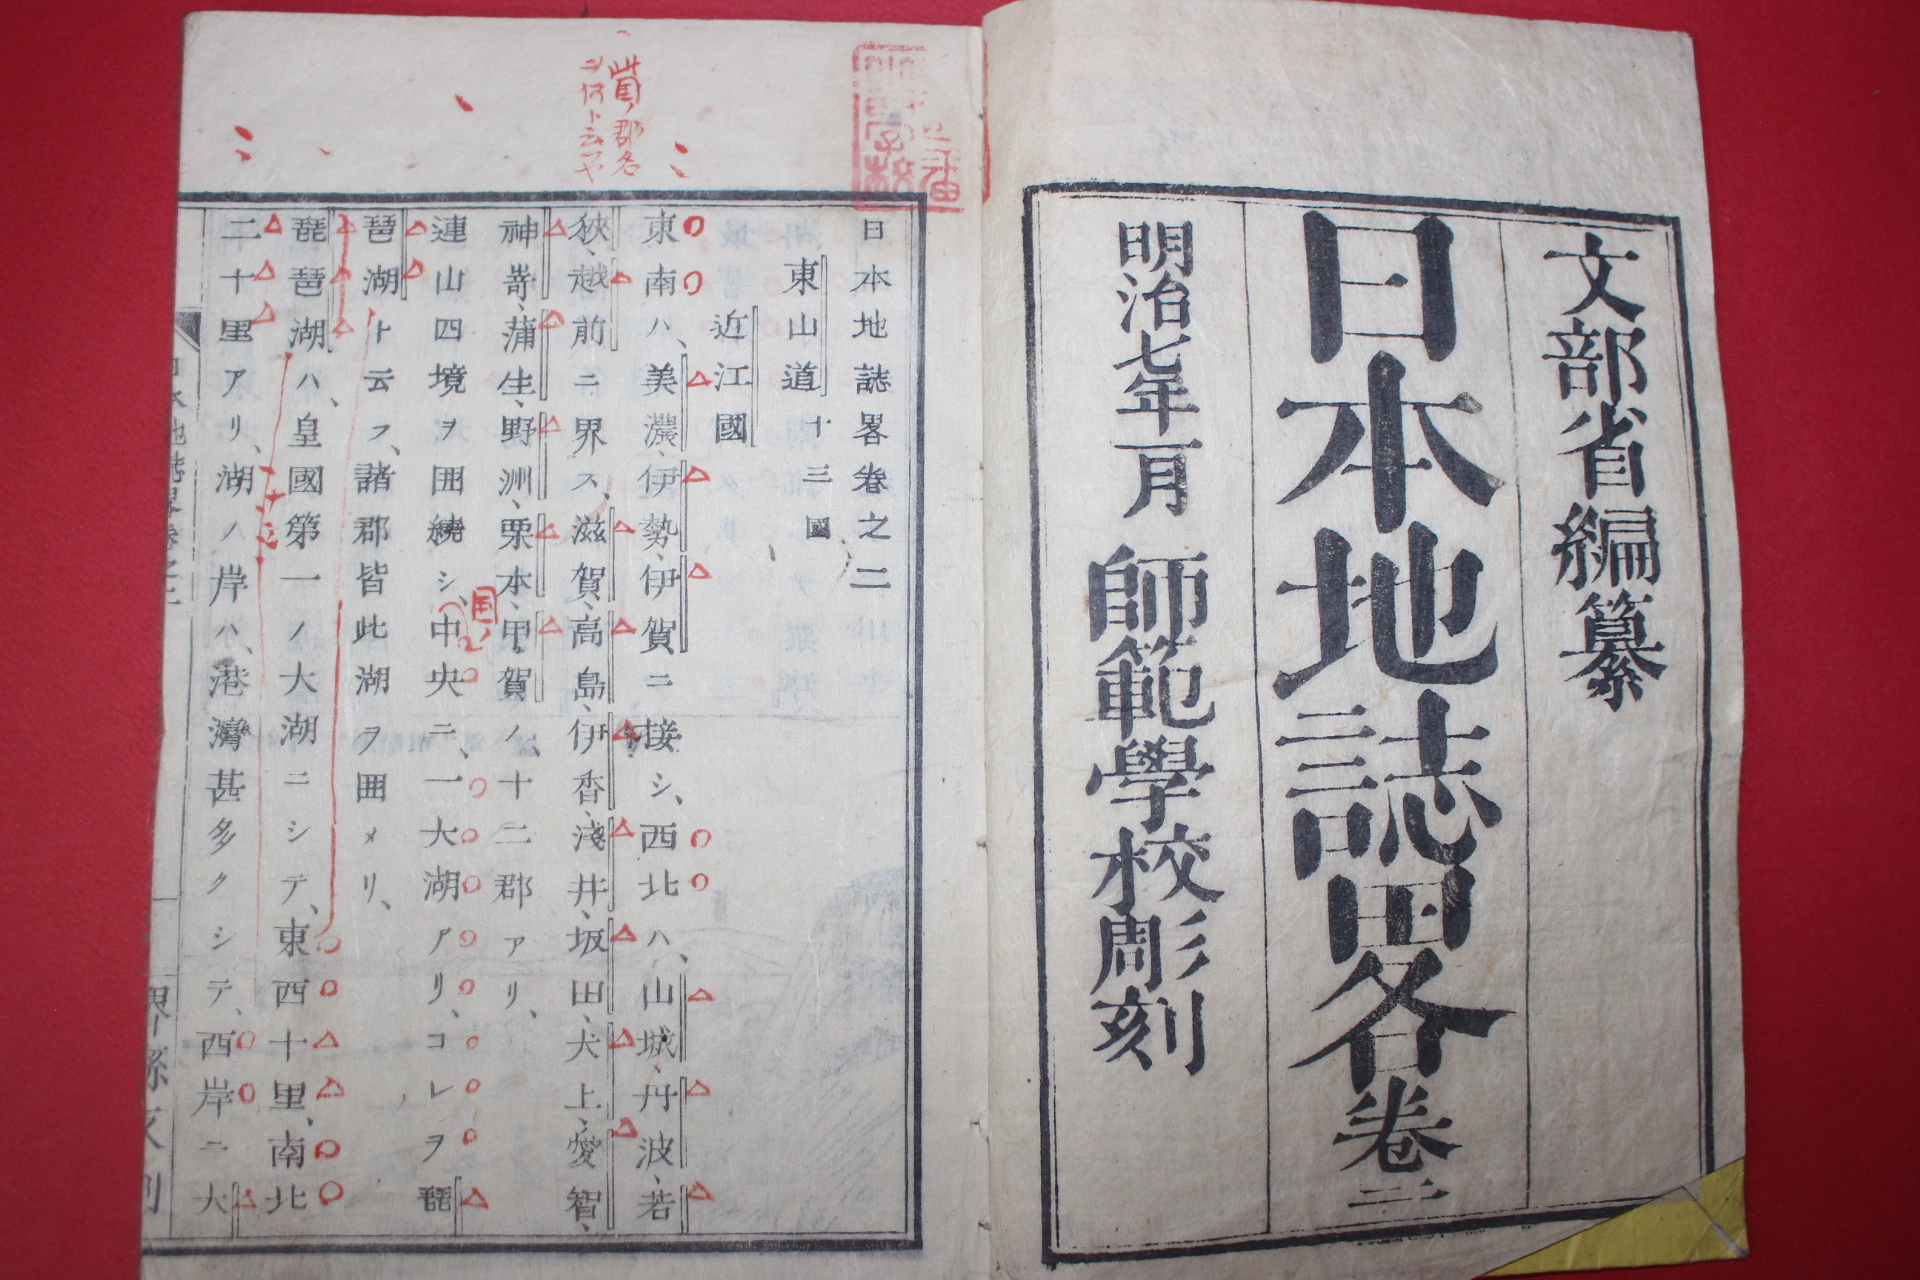 文部省編纂
日本地誌畧卷二
明治七年一月 師範學校彫刻
日本地誌畧卷之二
東山道十三國
近江國
東南ハ、美濃、伊勢、伊賀ニ接シ、西北ハ、山城、丹波、若
狹、越前ニ界ス、滋賀、高島、伊香、淺井、坂田、犬上、愛智、
神嵜、蒲生、野洲、栗本、甲賀ノ、十二郡アリ、
連山四境ヲ囲繞シ、中央ニ、一大湖アリ、コレヲ琵
琶湖ト云フ、諸郡皆此湖ヲ囲メリ、
琵琶湖ハ、皇國第一ノ大湖ニシテ、東西十里、南北
二十里アリ、湖ノ岸ハ、港灣甚多クシテ、西岸ニ大
日本地誌畧卷之二